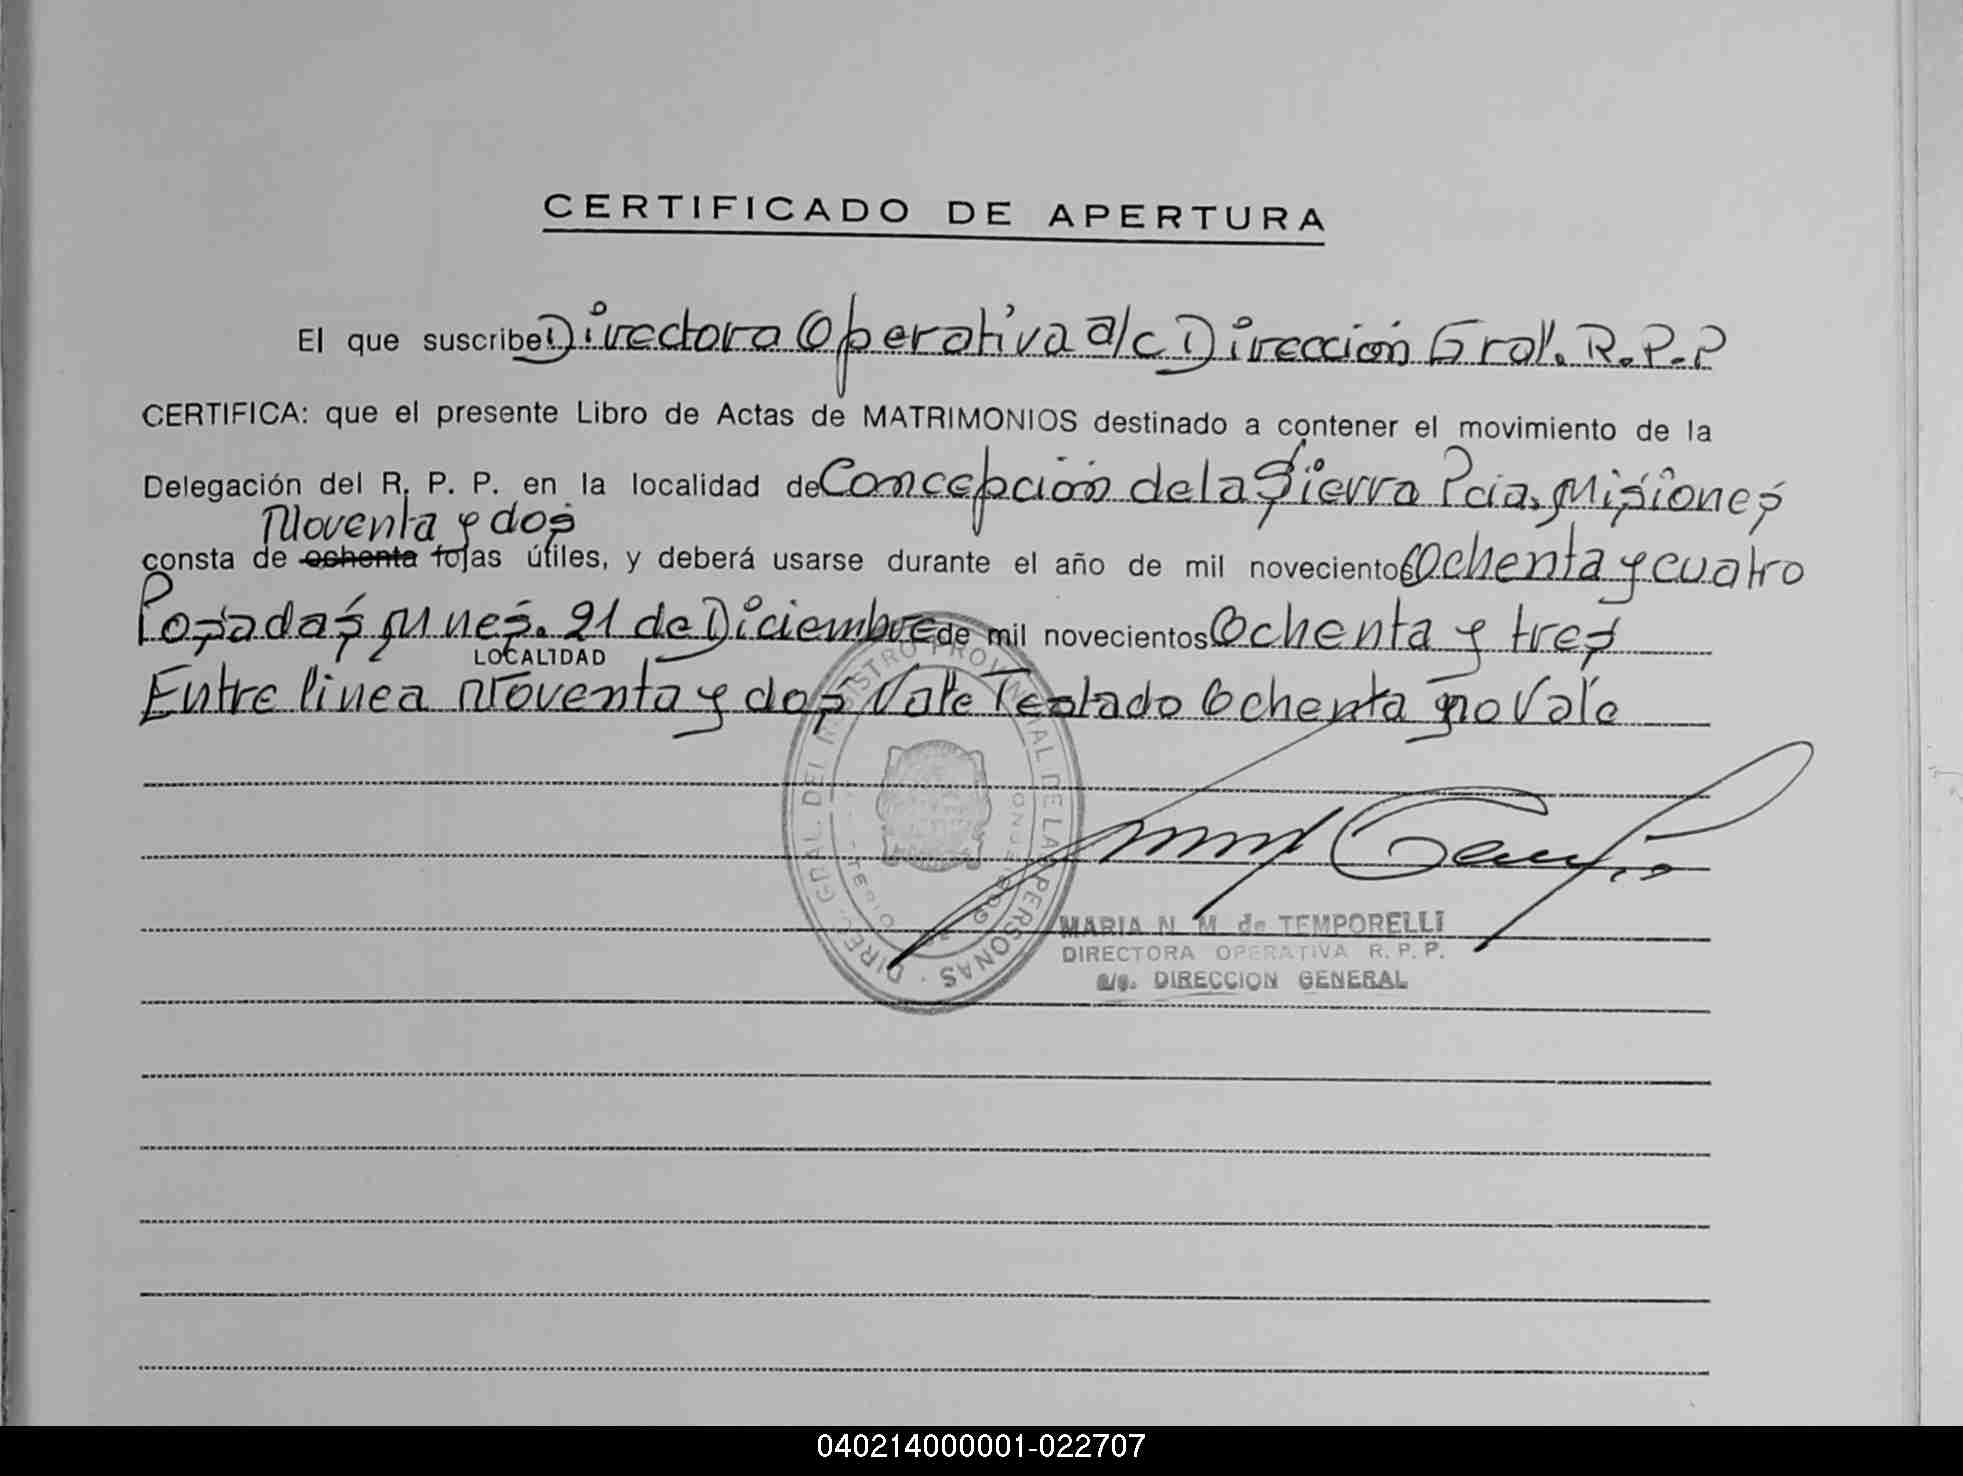 CERTIFICADO DE APERTURA
El que suscribe Directora Operativa a/c Dirección Gral. R.P.P
CERTIFICA: que el presente Libro de Actas de MATRIMONIOS destinado a contener el movimiento de la
Delegación del R. P. P. en la localidad de Concepción de la Sierra Pcia. Misiones
Noventa y dos
consta de ochenta fojas útiles, y deberá usarse durante el año de mil novecientos Ochenta y cuatro
Posadas Mnes. 21 de Diciembre de mil novecientos Ochenta y tres
LOCALIDAD
Entre linea Noventa y dos Vale Testado Ochenta no Vale
DIREC. GRAL. DEL REGISTRO PROVINCIAL DE LAS PERSONAS
MARIA N. M. de TEMPORELLI
DIRECTORA OPERATIVA R. P. P.
DIRECCION GENERAL
040214000001-022707